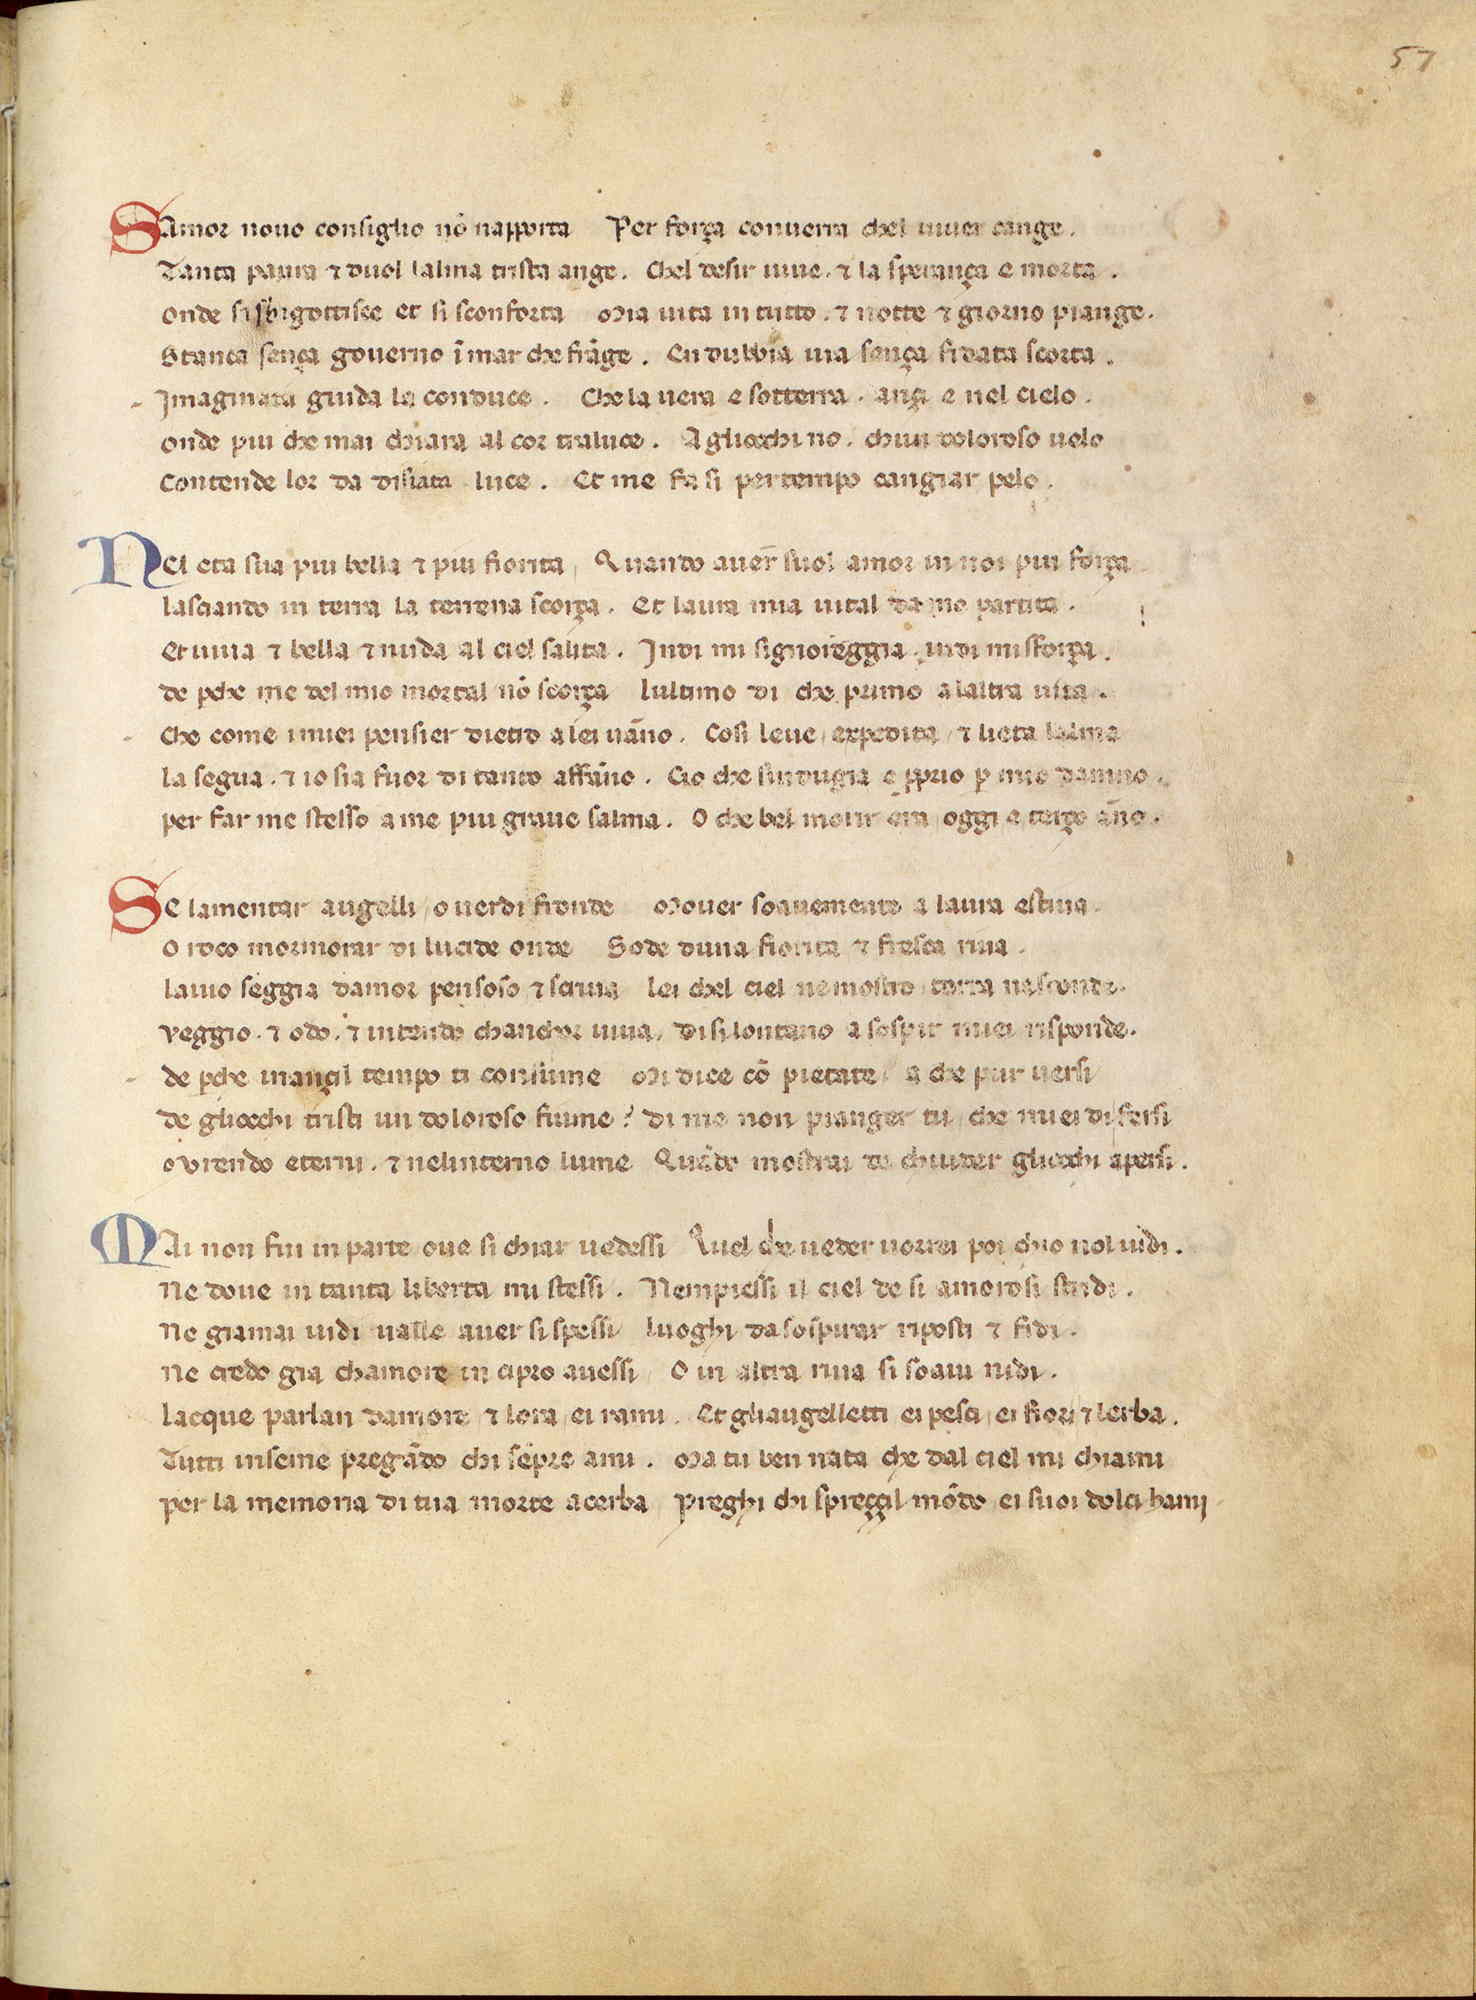 57
SAmor nouo consiglio nō napporta Per força conuerra chel uiuer cange.
Tanta paura ⁊ duol lalma trista ange. Chel desir uiue. ⁊ la sperança e morta.
onde si sbigottisce et si sconforta Mia uita in tutto. ⁊ notte ⁊ giorno piange.
Stanca sença gouerno ī mar che frāge. En dubbia uia sença fidata scorta.
Imaginata guida la conduce. Che la uera e sotterra. anzi e nel cielo.
onde piu che mai chiara al cor traluce. A gliocchi no. chun doloroso uelo
Contende lor la disiata luce. Et me fa si per tempo cangiar pelo.
NEl eta sua piu bella ⁊ piu fiorita / Quando auer suol amor in noi piu força
lasciando in terra la terrena scorça. Et laura mia uital da me partita.
Et uiua ⁊ bella ⁊ nuda al ciel salita. Indi mi signoreggia. indi mi sforça.
de pche me del mio mortal nō scorça lultimo di che primo alaltra uita.
Che come i miei pensier dietro a lei uāno. Cosi leue / expedita / ⁊ lieta lalma
la segua. ⁊ io sia fuor di tanto affāno. Cio che sindugia e pprio p mio damno.
per far me stesso a me piu graue salma. O che bel morir era / oggi e terço āno.
SE lamentar augelli / o uerdi fronde Mouer soauemente a laura estiua.
O roco mormorar di lucide onde Sode duna fiorita ⁊ fresca riua.
lauio seggia damor pensoso ⁊ scriua lei chel ciel ne mostro / terra nasconde.
veggio. ⁊ odo. ⁊ intendo chanchor uiua / di si lontano a sospir miei risponde.
de pche inançil tempo ti consume Mi dice cō pietate / a che pur uersi
de gliocchi tristi un doloroso fiume? di me non pianger tu / che miei di fersi
o vrendo eterni. ⁊ nelinterno lume Quādo mostrai de chiuder gliocchi apersi.
MAi non fui in parte oue si chiar uedessi Quel che ueder uorrei poi chio nol uidi.
Ne doue in tanta liberta mi stessi. Nempiessi il ciel de si amorosi stridi.
Ne giamai uidi ualle auer si spessi luoghi da sospirar riposti ⁊ fidi.
Ne credo gia chamore in cipro auessi / O in altra riua si soaui nidi.
lacque parlan damore / ⁊ lora / ei rami. Et gliaugelletti ei pesci / ei fiori ⁊ lerba.
Tutti inseme pregādo chi sēpre ami. Ma tu ben nata che dal ciel mi chiami
per la memoria di tua morte acerba / Preghi chi spreççil mōdo / ei suoi dolci hami